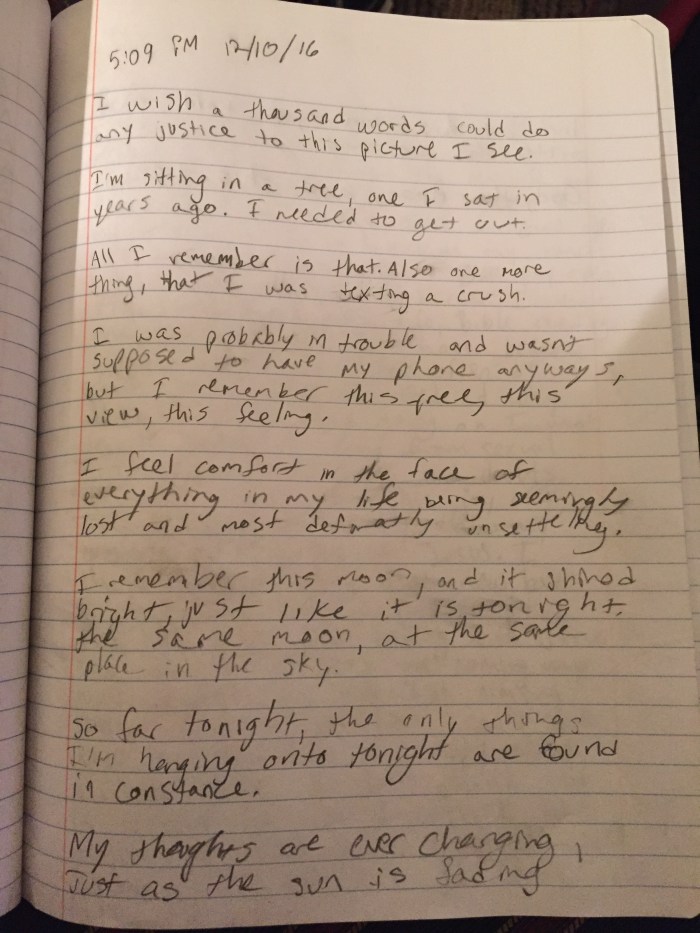 5:09 PM 12/10/16
I wish a thousand words could do
any justice to this picture I see.
I'm sitting in a tree, one I sat in
years ago. I needed to get out.
All I remember is that. Also one more
thing, that I was texting a crush.
I was probably in trouble and wasnt
supposed to have my phone anyways,
but I remember this tree, this
view, this feeling.
I feel comfort in the face of
everything in my life being seemingly
lost and most definatly unsettelling.
I remember this moon, and it shined
bright, just like it is tonight.
the same moon, at the same
place in the sky.
So far tonight, the only things
I'm hanging onto tonight are found
in constance.
My thoughts are ever changing,
Just as the sun is fading